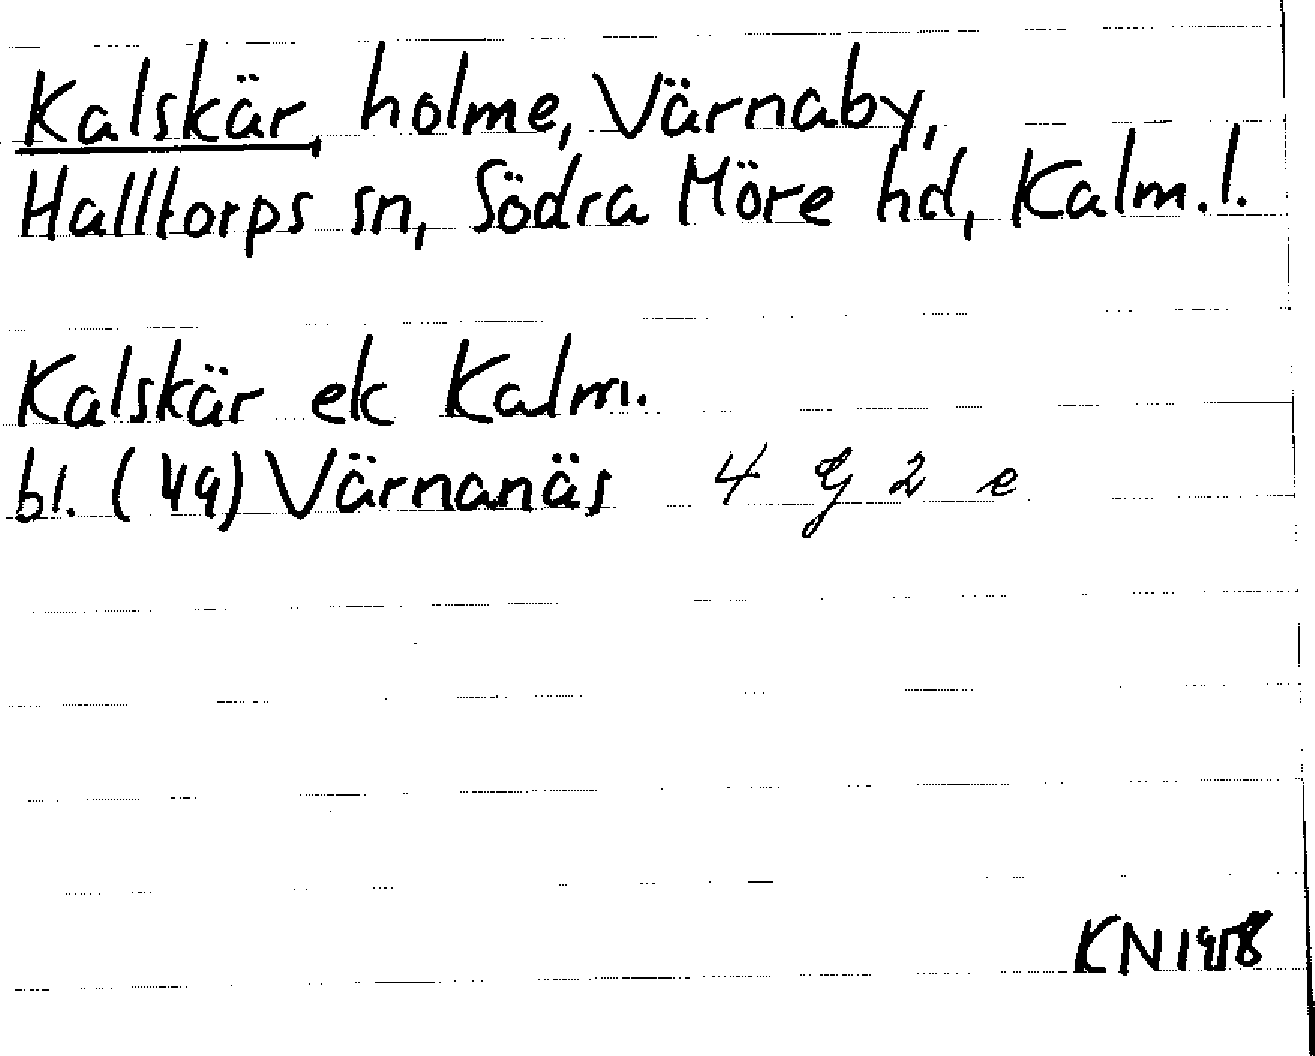 Kalskär, holme, Värnaby,
Halltorps sn, Södra Möre hd, Kalm. l.
Kalskär ek Kalm.
bl. (49) Värnanäs 4 G 2 e
KN 1958